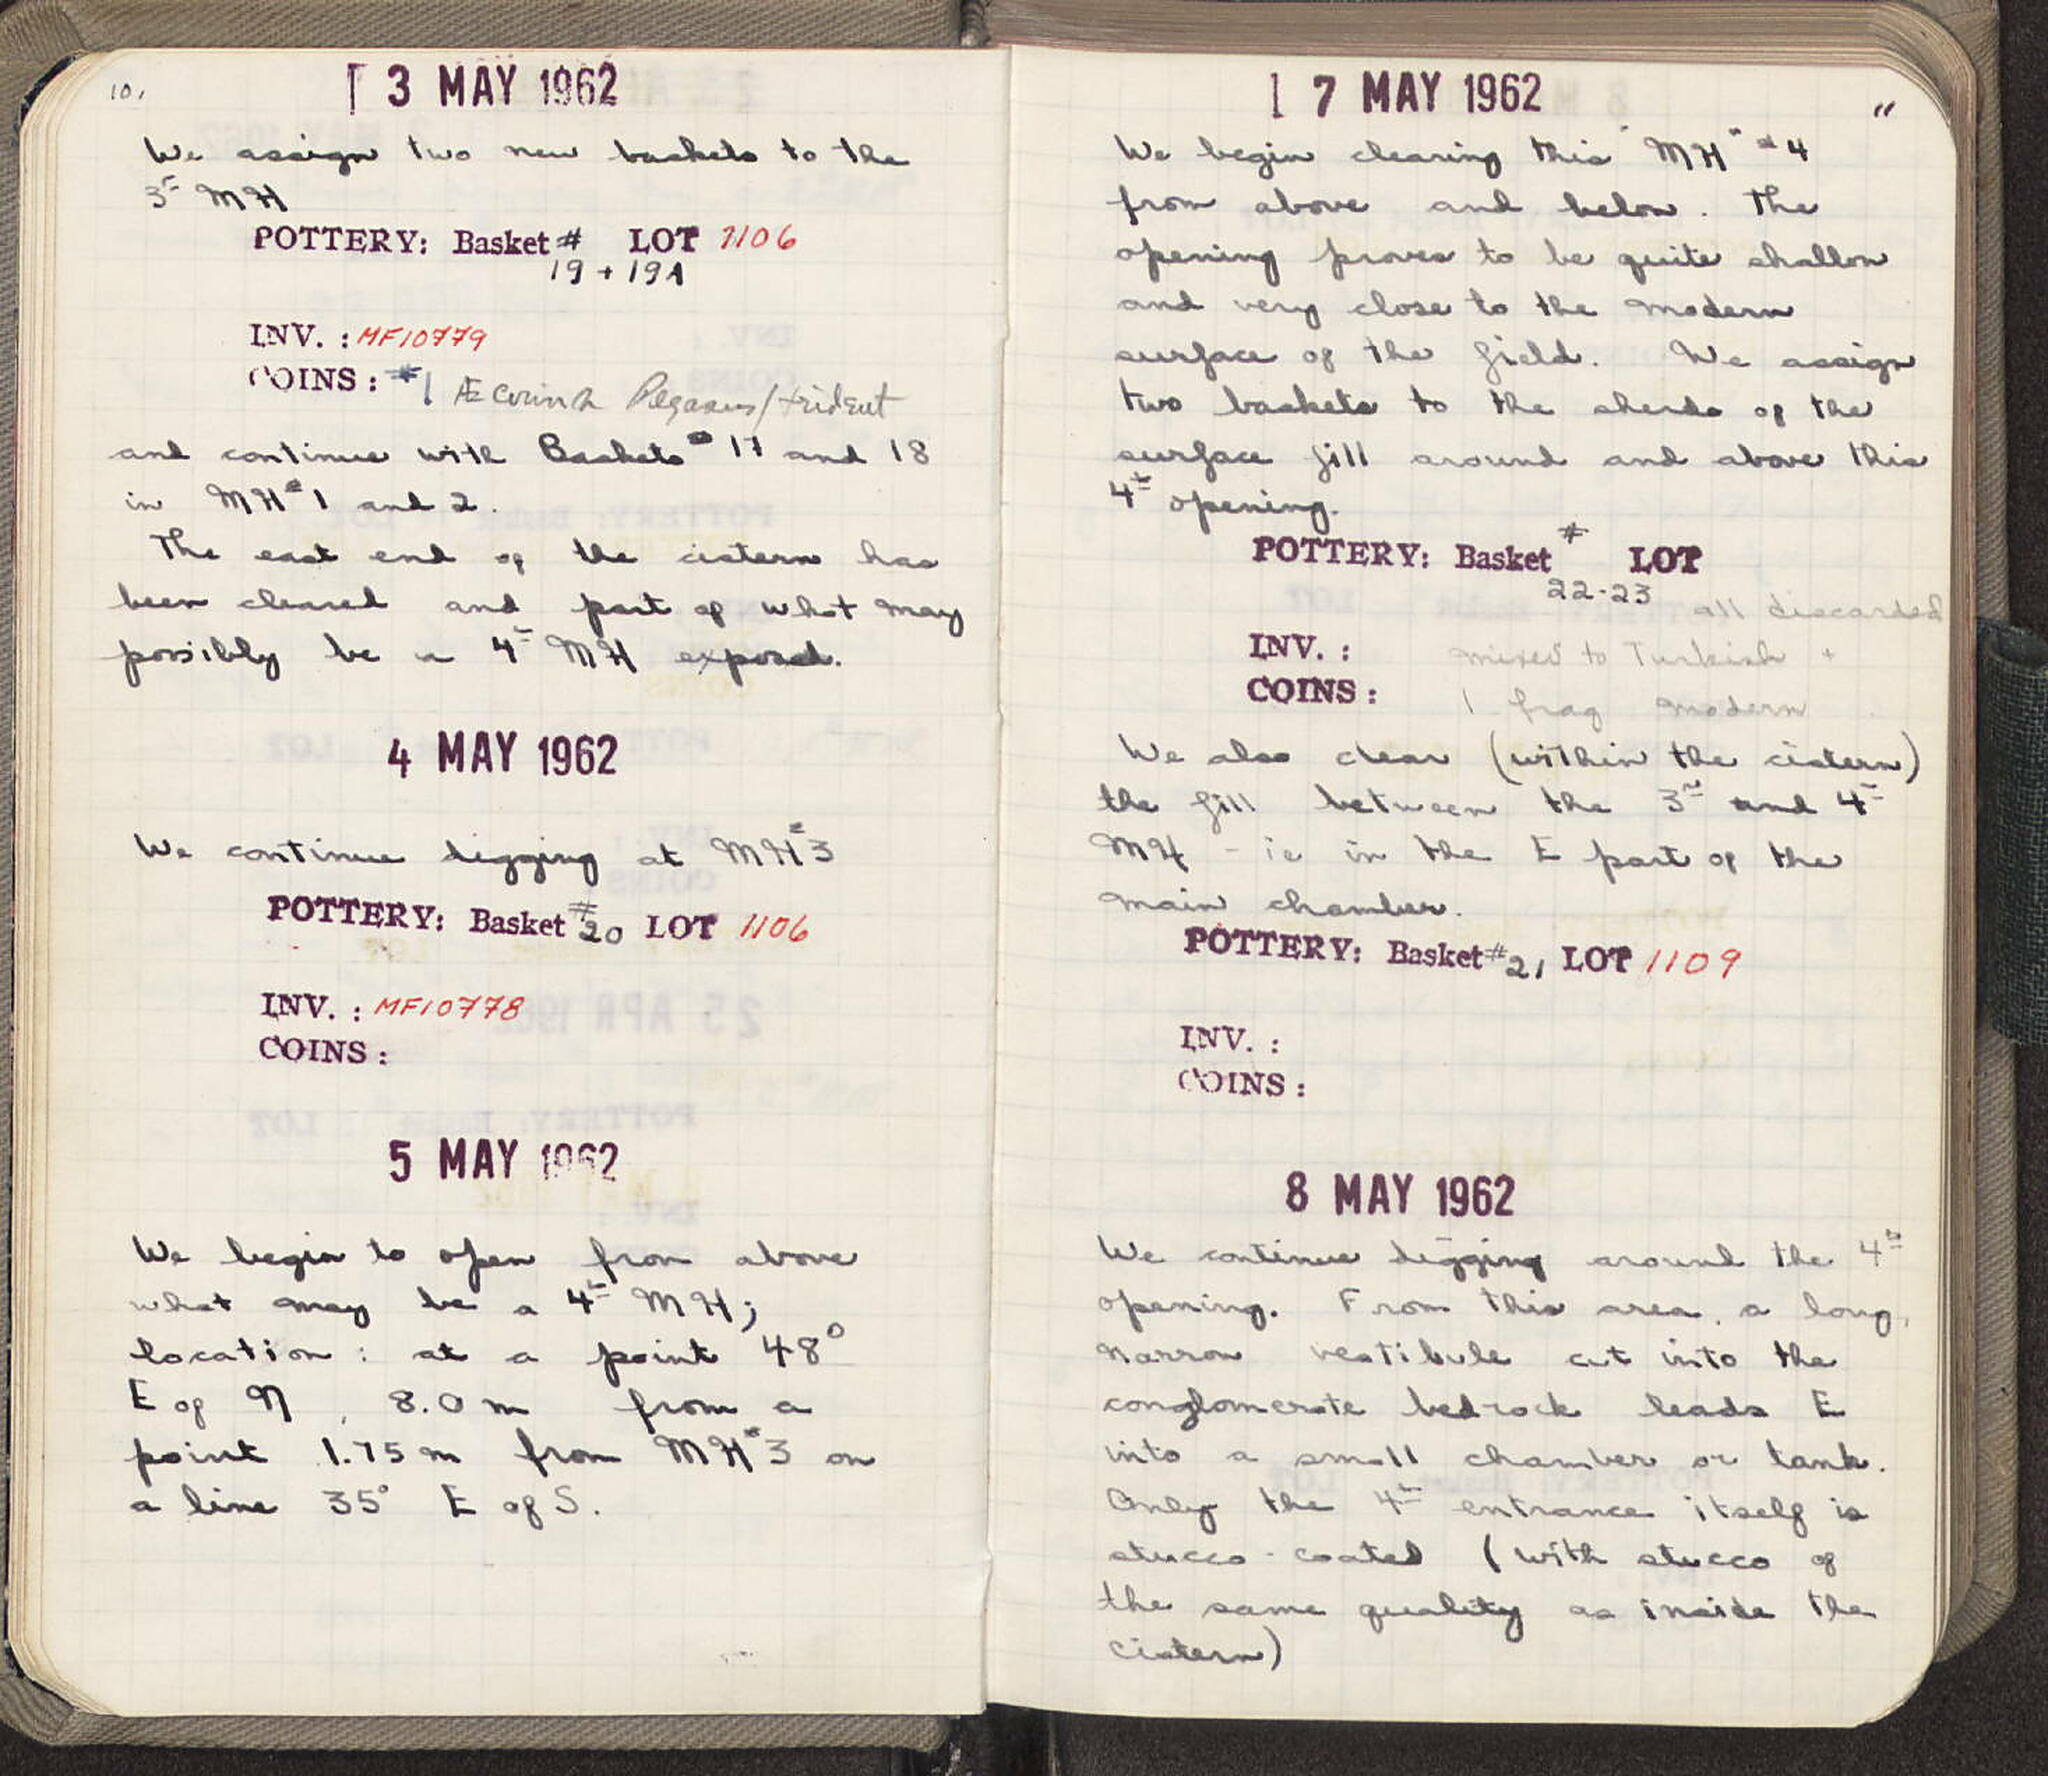 10.
3 MAY 1962
We assign two new baskets to the
3rd MH
POTTERY: Basket # LOT 1106
19 + 19A
INV. : MF10779
COINS : #1 Æ Corinth Pegasus/trident
and continue with Baskets # 17 and 18
in MH # 1 and 2.
The east end of the cistern has
been cleared and part of what may
possibly be a 4th MH exposed.
4 MAY 1962
We continue digging at MH #3
POTTERY: Basket # 20 LOT 1106
INV. : MF10778
COINS :
5 MAY 1962
We begin to open from above
what may be a 4th MH;
location : at a point 48°
E of N, 8.0 m from a
point 1.75 m from MH #3 on
a line 35° E of S.
11
7 MAY 1962
We begin clearing this "MH" # 4
from above and below. The
opening proves to be quite shallow
and very close to the modern
surface of the field. We assign
two baskets to the sherds of the
surface fill around and above this
4th opening.
POTTERY: Basket # LOT
22-23 all discarded
INV. : mixed to Turkish +
COINS : 1 frag modern
We also clear (within the cistern)
the fill between the 3rd and 4th
MH - ie in the E part of the
main chamber.
POTTERY: Basket # 21 LOT 1109
INV. :
COINS :
8 MAY 1962
We continue digging around the 4th
opening. From this area, a long,
narrow vestibule cut into the
conglomerate bedrock leads E
into a small chamber or tank.
Only the 4th entrance itself is
stucco-coated (with stucco of
the same quality as inside the
cistern)